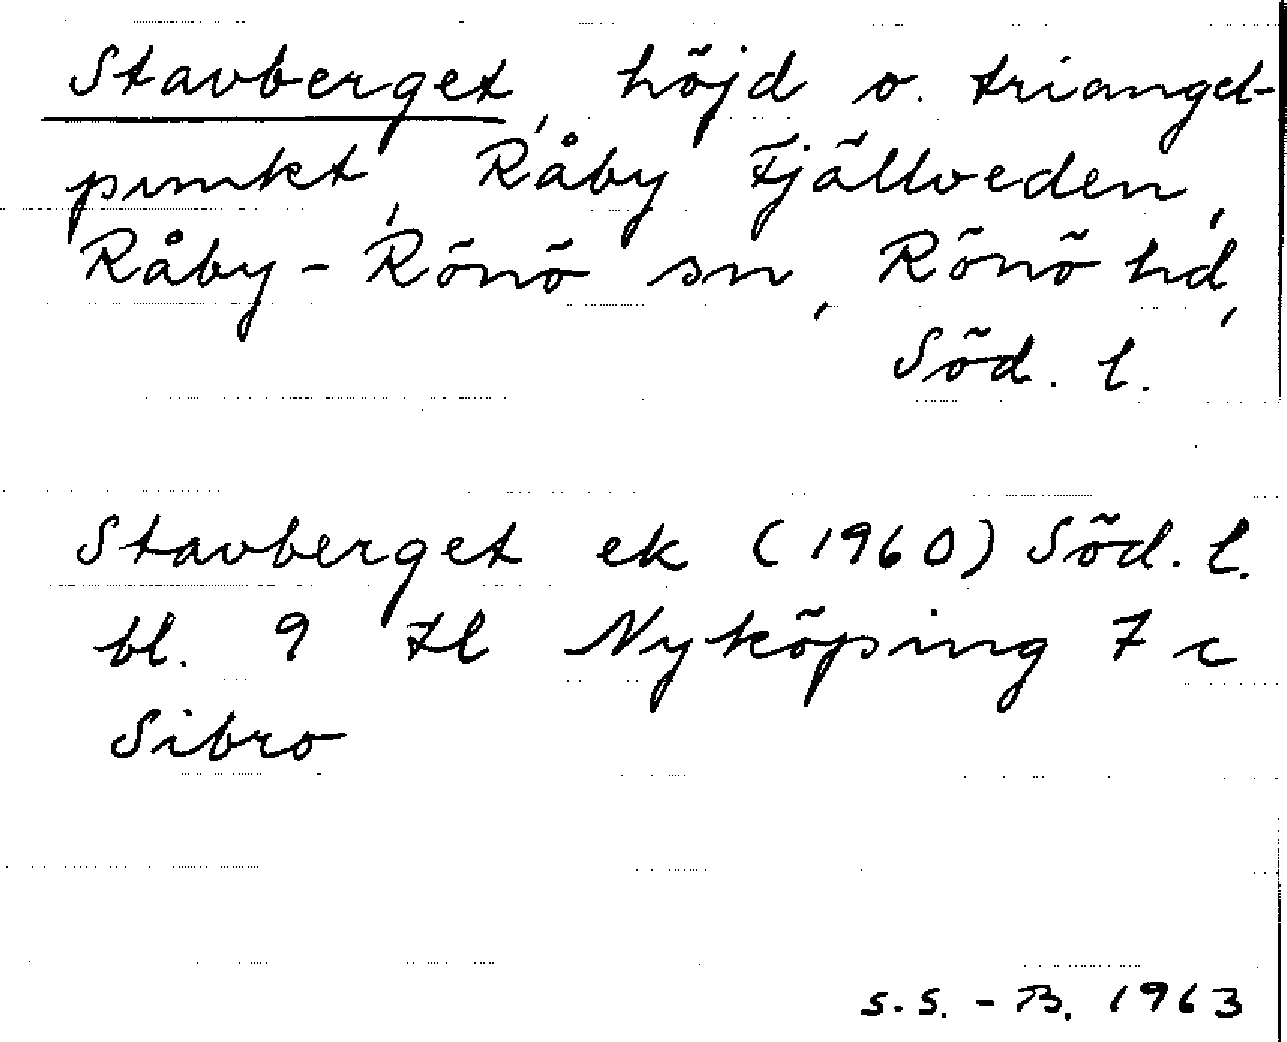 Stavberget, höjd o. triangel-
punkt, Råby Fjällveden,
Råby-Rönö sn, Rönö hd,
Söd. l.
Stavberget ek (1960) Söd. l.
bl. 9 Jl Nyköping 7 c
Sibro
S.S.-B. 1963